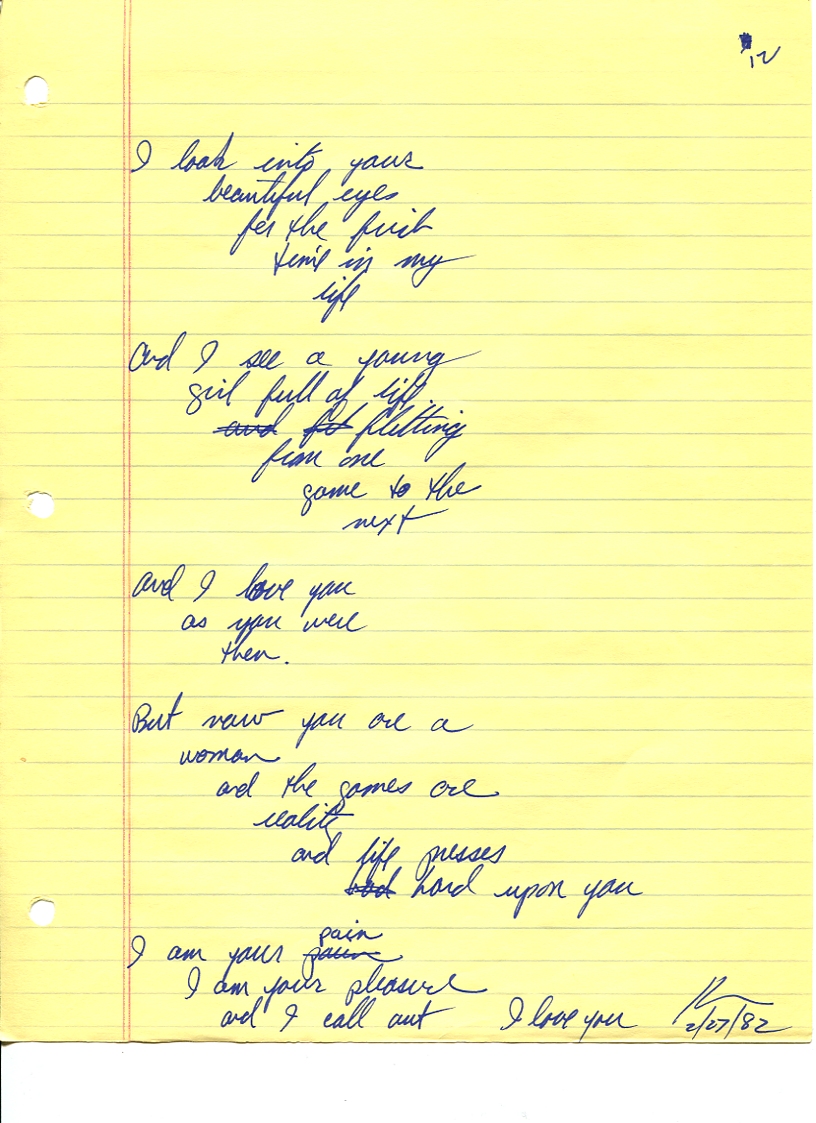 12
I look into your
beautiful eyes
for the first
time in my
life
And I see a young
girl full of life
and flitting
from one
game to the
next
and I love you
as you were
then.
But now you are a
woman
and the games are
reality
and life presses
hard upon you
pain
I am your
I am your pleasure
and I call out I love you
2/27/82